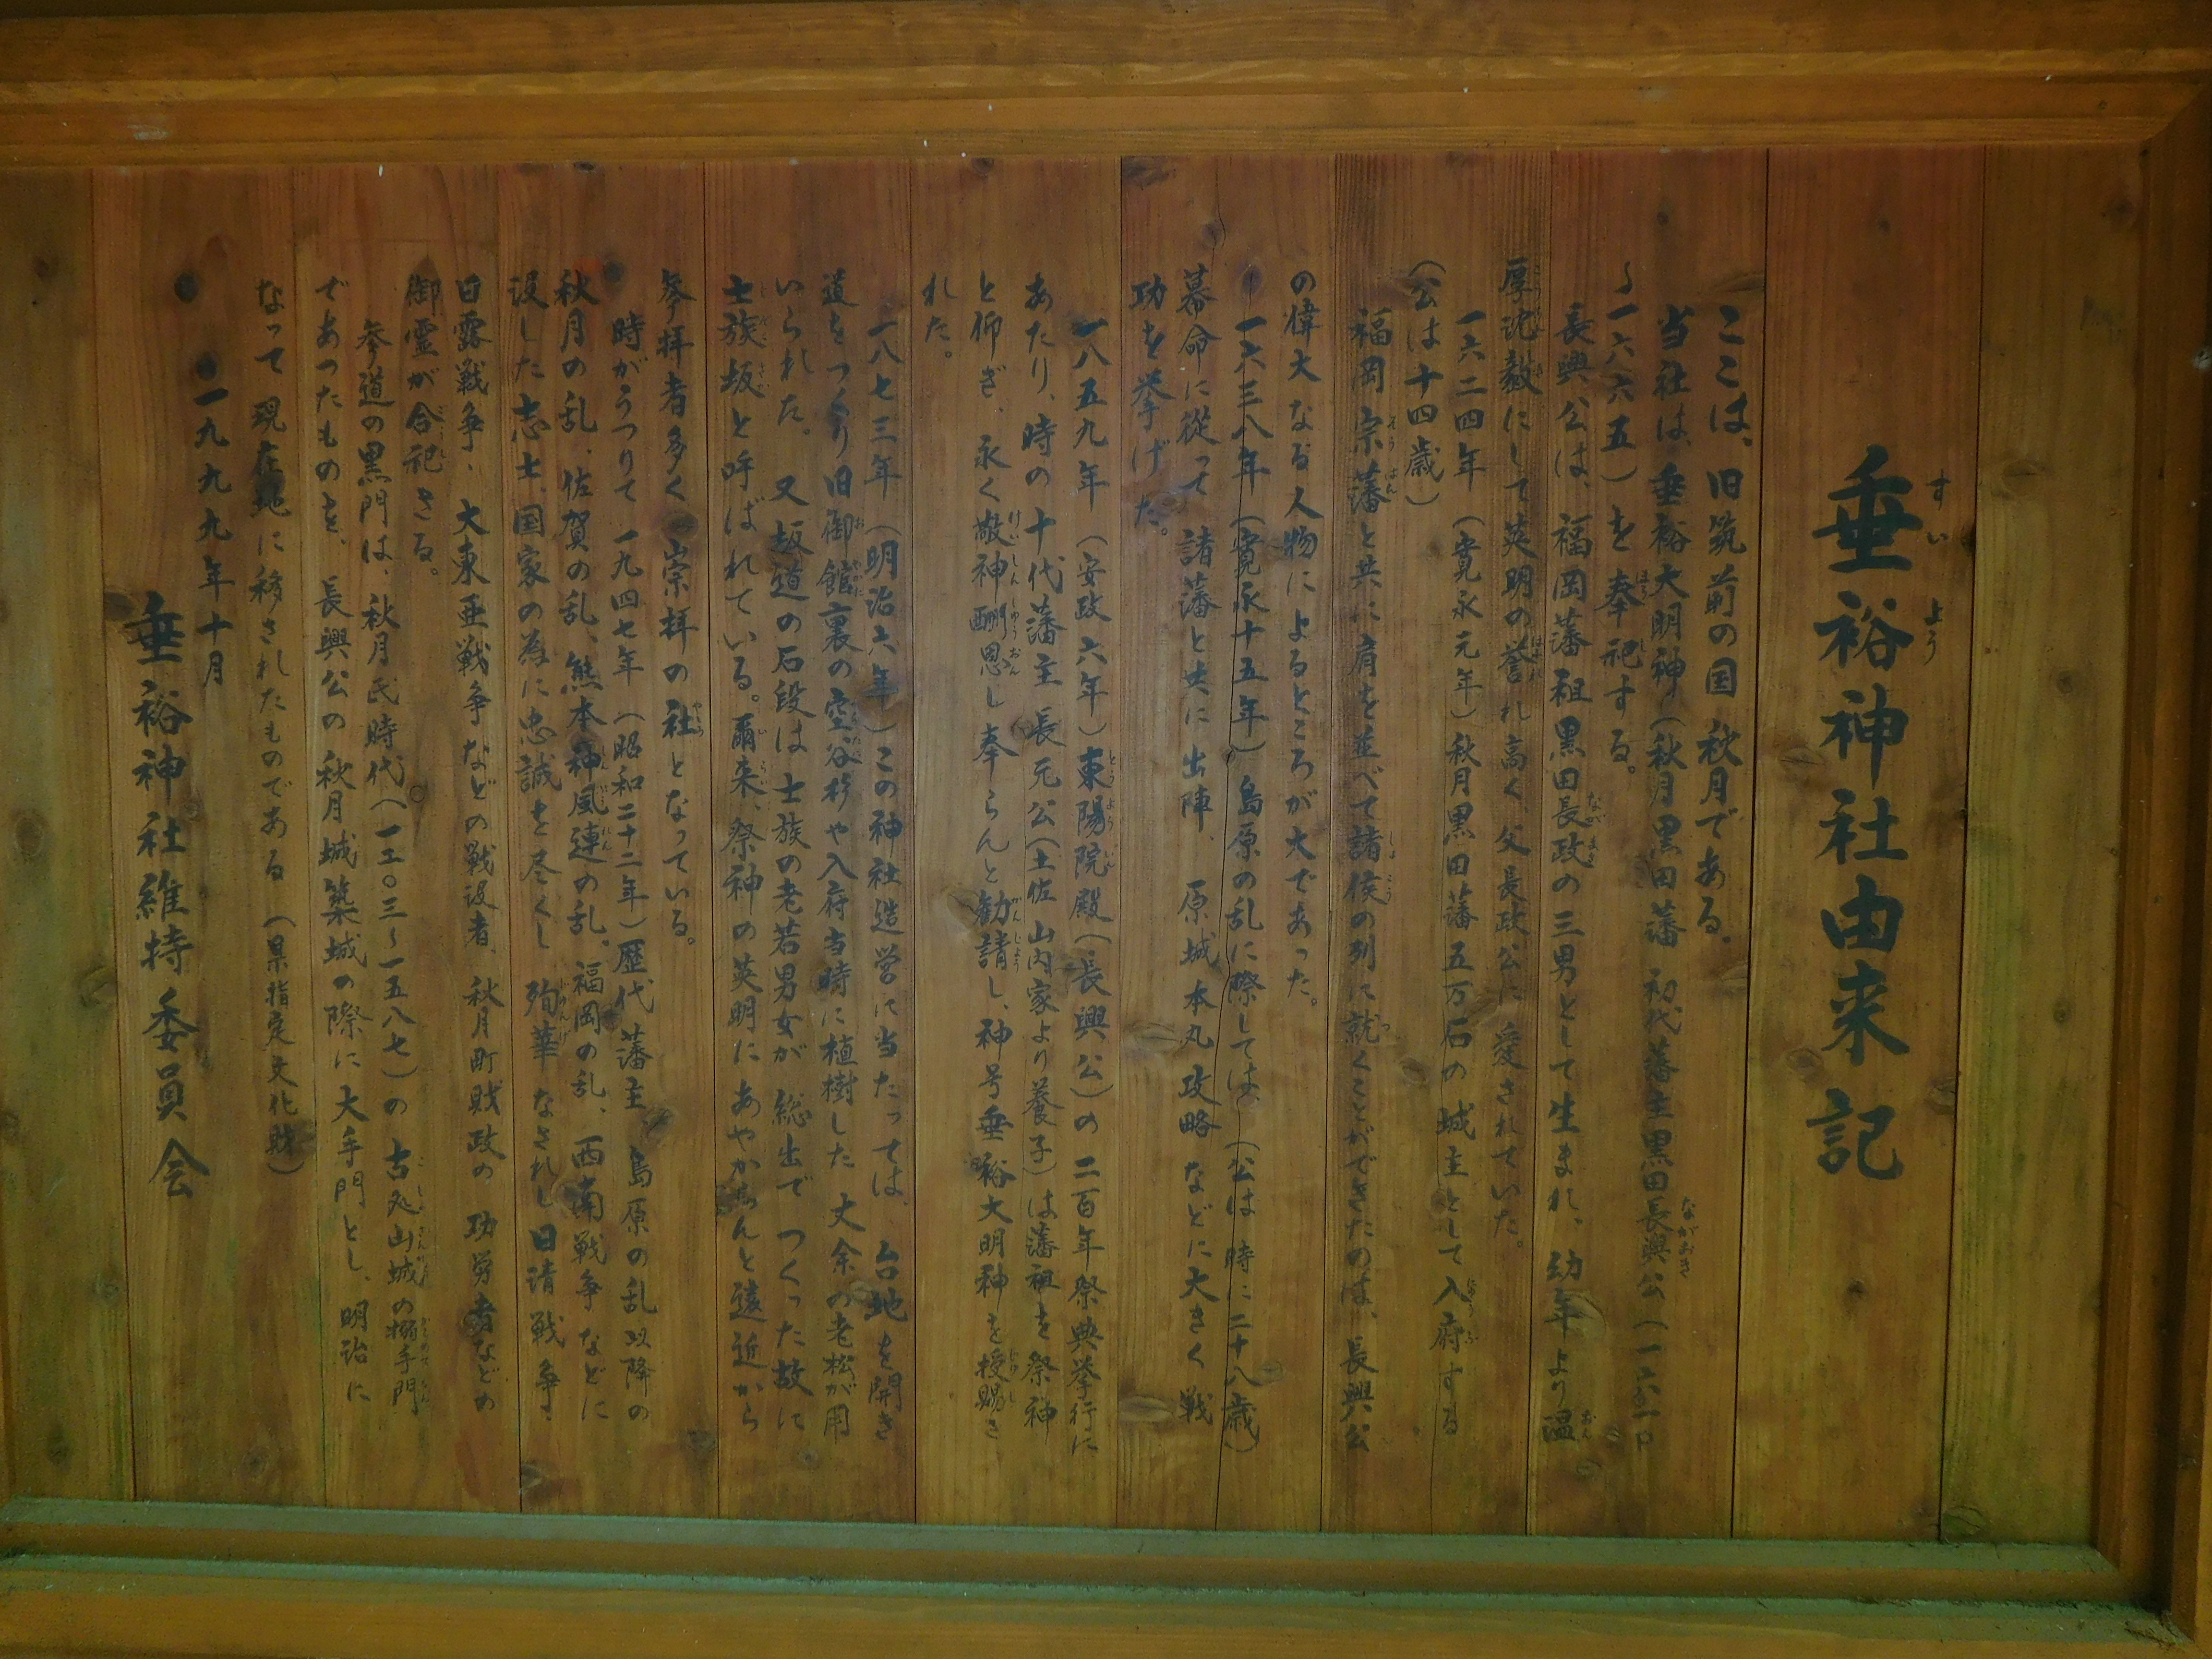 垂裕神社由来記
ここは、旧筑前の国 秋月である。
当社は、垂裕大明神(秋月黒田藩 初代藩主黒田長興公(一六一〇
〜一六六五)を奉祀する。
長興公は、福岡藩祖黒田長政の三男として生まれ、幼年より温
厚沈毅にして英明の誉れ高く、父長政公に愛されていた。
一六二四年(寛永元年)秋月黒田藩五万石の城主として入府する
(公は十四歳)
福岡宗藩と共に肩を並べて諸侯の列に就くことができたのは、長興公
の偉大なる人物によるところが大であった。
一六三八年(寛永十五年)島原の乱に際しては、(公は時に二十八歳)
幕命に従って 諸藩と共に出陣、原城本丸攻略などに大きく戦
功を挙げた。
一八五九年(安政六年)東陽院殿(長興公)の二百年祭典挙行に
あたり、時の十代藩主 長元公(土佐山内家より養子)は藩祖を祭神
と仰ぎ、永く敬神酬恩し奉らんと勧請し、神号垂裕大明神を授賜さ
れた。
一八七三年(明治六年)この神社造営に当たっては、台地を開き
道をつくり旧御館裏の空谷杉や入府当時に植樹した丈余の老松が用
いられた。又坂道の石段は士族の老若男女が総出でつくった故に
士族坂と呼ばれている。爾来、祭神の英明にあやからんと遠近から
参拝者多く崇拝の社となっている。
時がうつりて一九四七年(昭和二十二年)歴代藩主、島原の乱以降の
秋月の乱、佐賀の乱、熊本神風連の乱、福岡の乱、西南戦争などに
没した志士、国家の為に忠誠を尽くし 殉華なされし日清戦争、
日露戦争、大東亜戦争などの戦没者、秋月町財政の功労者などの
御霊が合祀さる。
参道の黒門は、秋月氏時代(一二〇三〜一五八七)の古処山城の搦手門
であったものを、長興公の秋月城築城の際に大手門とし、明治に
なって現在地に移されたものである(県指定文化財)
一九九九年十月
垂裕神社維持委員会